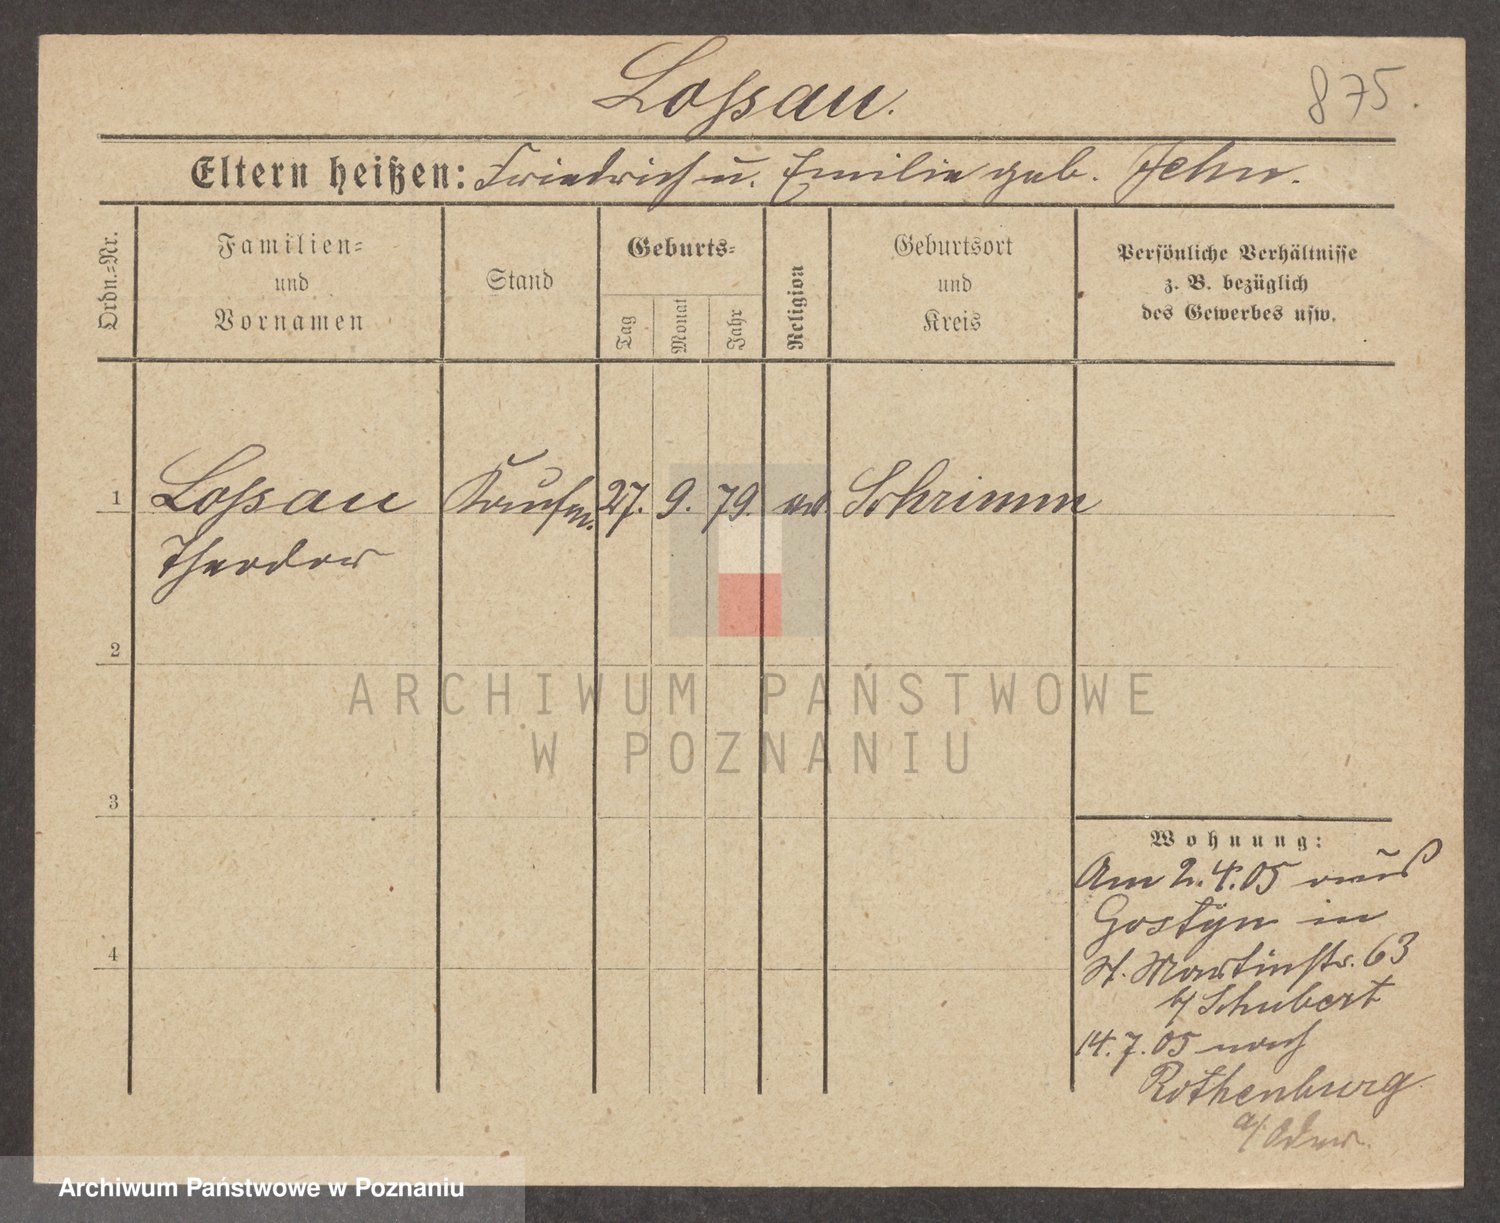 Lossau.
875.
Eltern heißen: Friedrich u. Emilie geb. Jehn.
Ordn.=Nr.
Familien=
und
Vornamen
Stand
Geburts=
Tag
Monat
Jahr
Religion
Geburtsort
und
Kreis
Persönliche Verhältnisse
z. B. bezüglich
des Gewerbes usw.
1 Lossau Kaufm. 27. 9. 79. ev Schrimm
Theodor
2
3
4
Wohnung:
Am 2.4.05 aus
Gostyn in
St. Martinstr. 63
b/ Schubert
14.7.05 nach
Rothenburg
a/ Oder.
ARCHIWUM PAŃSTWOWE
W POZNANIU
Archiwum Państwowe w Poznaniu